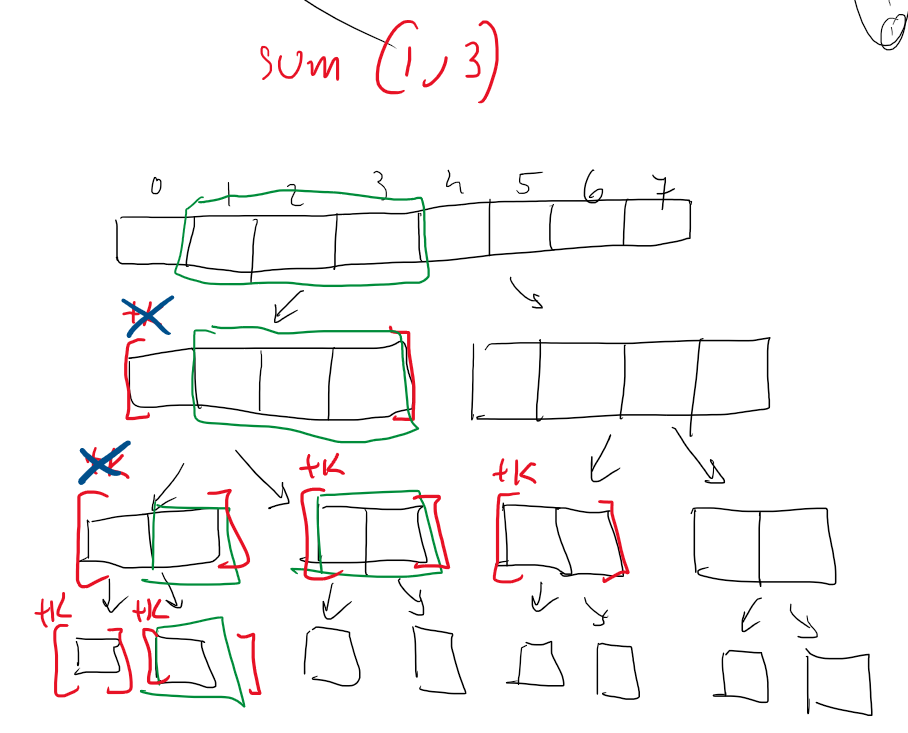 sum (1, 3)
0 1 2 3 4 5 6 7
+K
+K +K +K
+K +K